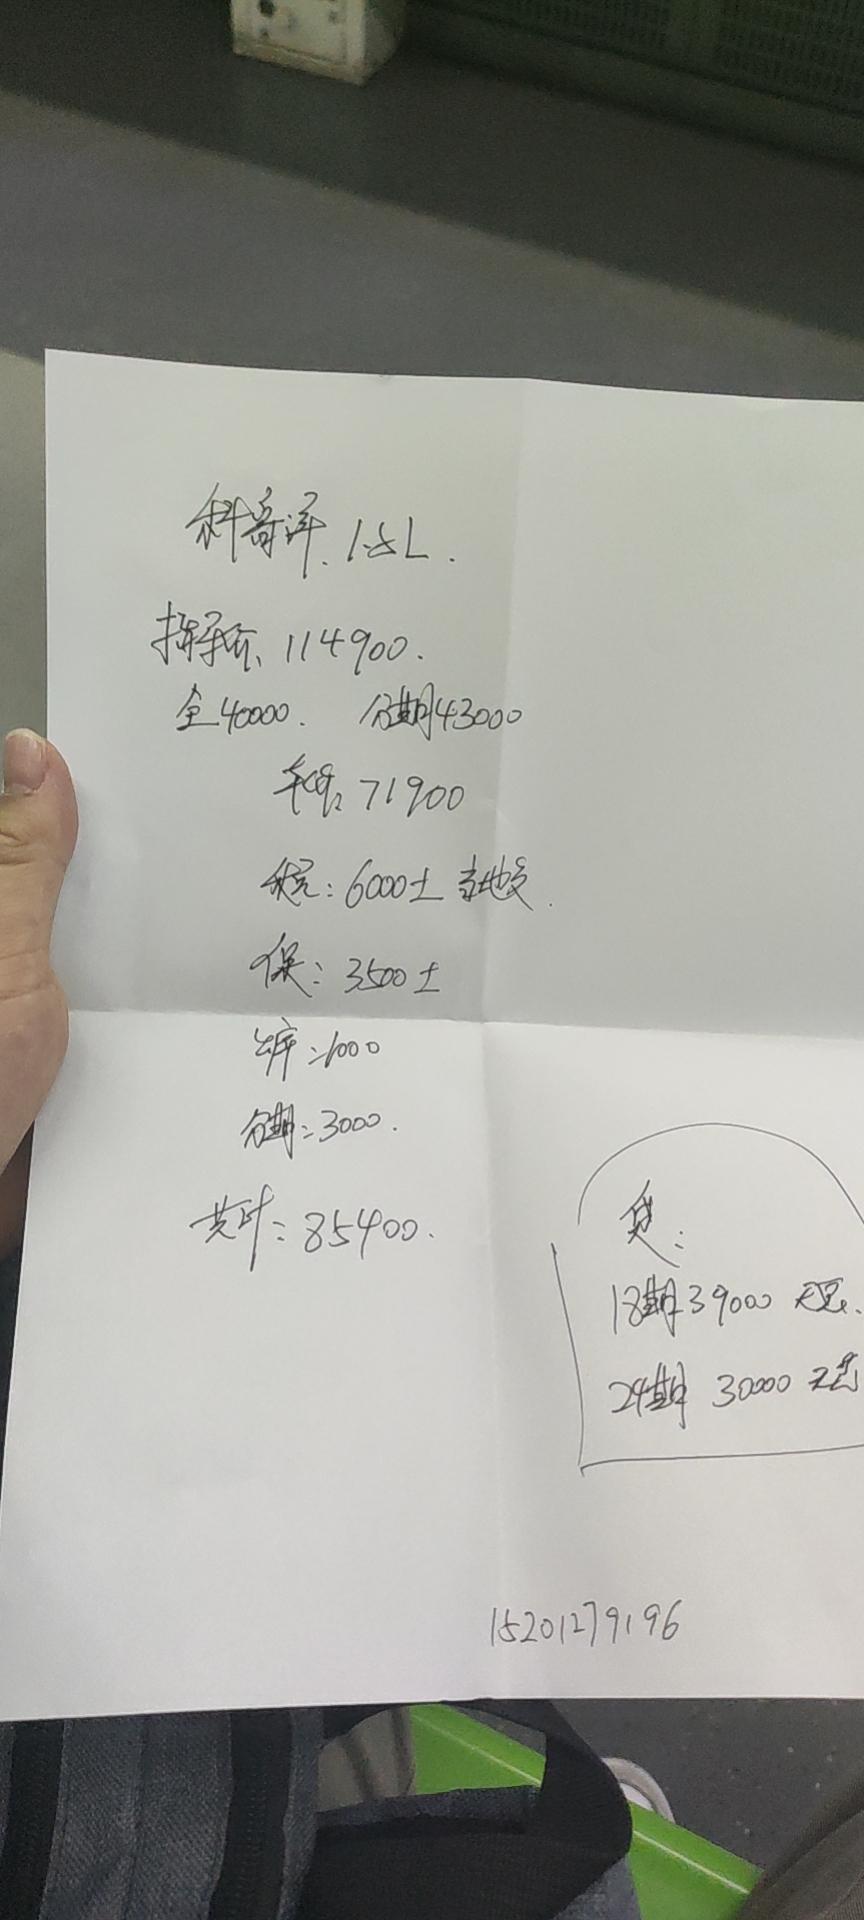 科雷洋、1.5L.
指导价、114900.
全40000. 分期43000
车价: 71900
税: 6000± 当地交.
保: 3500±
出库: 1000
分期: 3000.
共计: 85400.
贷:
18期 39000 无息.
24期 30000 无息
15201279196